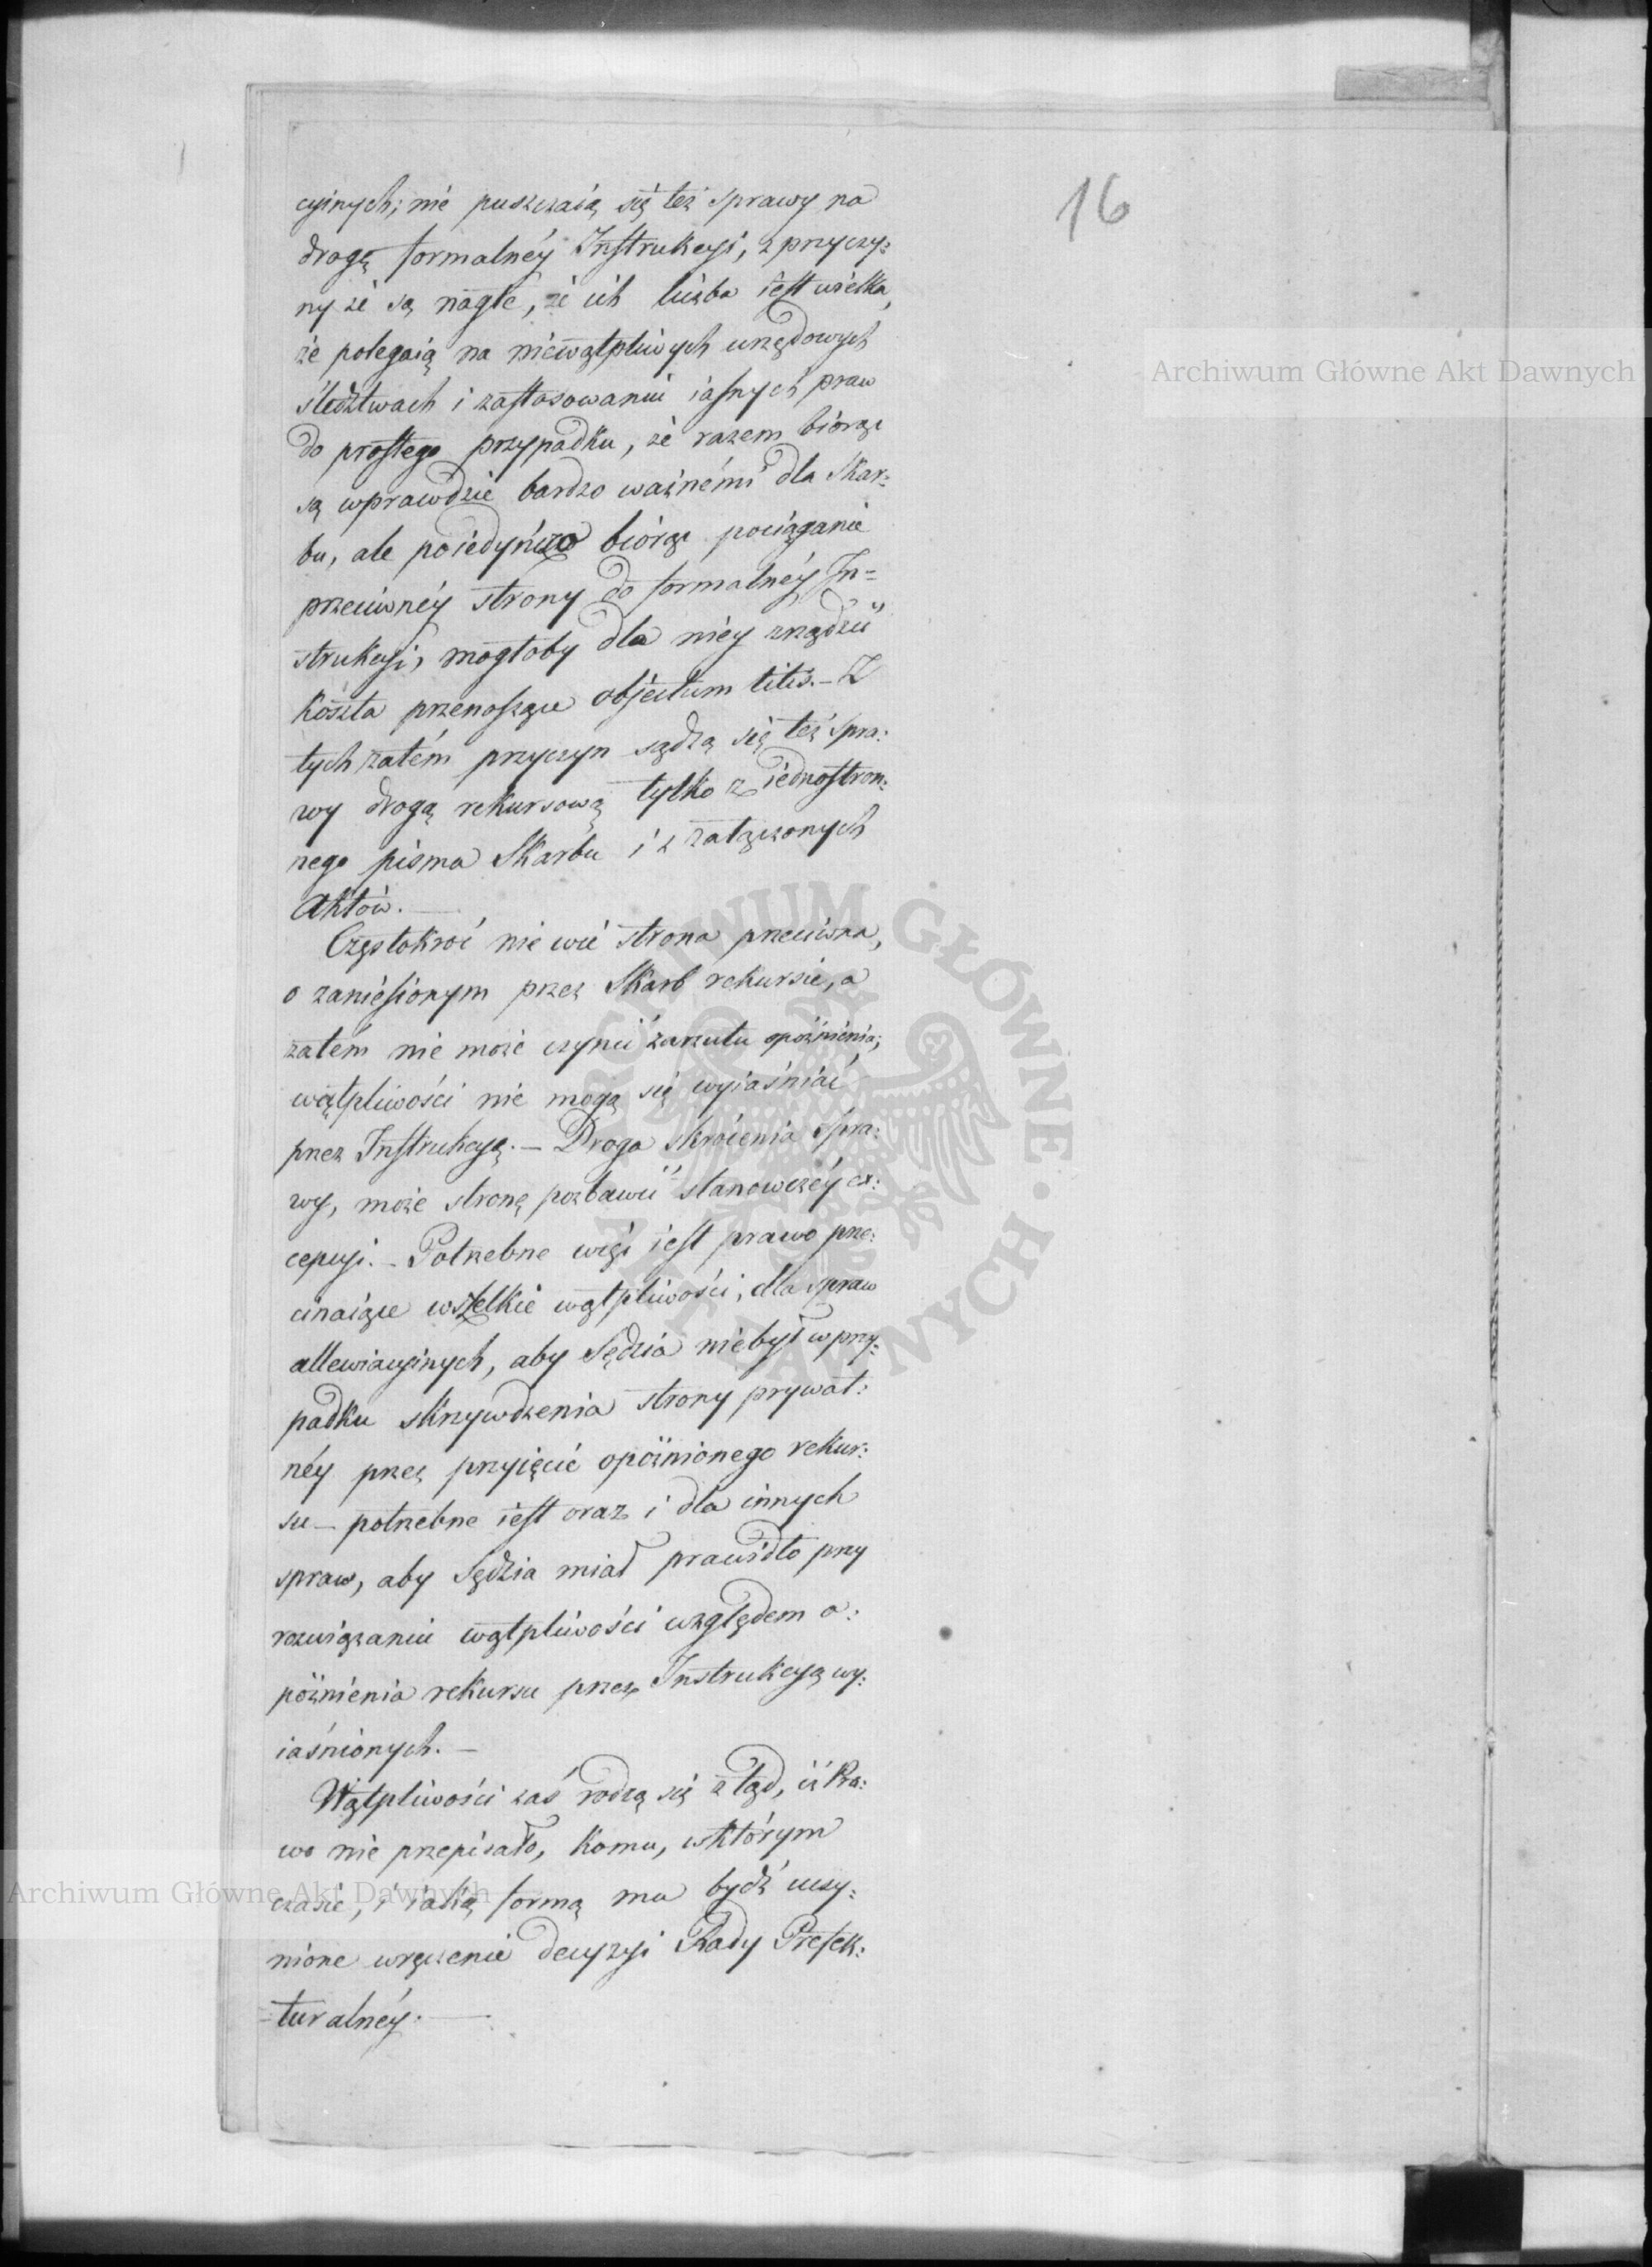 16
cyinych; nie puszczaią się też sprawy na
drogę formalnéy Instrukcyi, z przyczy:
ny że są nagłe, że ich liczba iest wielka,
że polegaią na niewątpliwych urzędowych
śledztwach i zastosowaniu iasnych praw
do prostego przypadku, że razem biorąc
są wprawdzie bardzo ważnémi dla Skar:
bu, ale poiedyńczo biorąc pociąganie
przeciwnéy strony do formalnéy In=
strukcyi, mogłoby dla niey zrządzić
koszta przenoszące objectum litis. – Z
tych zatém przyczyn sądzą się też spra:
wy drogą rekursową tylko z iednostron:
nego pisma Skarbu i z załączonych
Aktów. —
Częstokroć nie wie strona przeciwna,
o zaniesionym przez Skarb rekursie, a
zatém nie może czynić zarzutu opóźnienia;
wątpliwości nie mogą się wyiaśniać
przez Instrukcyą. – Droga skrócenia spra:
wy, może stronę pozbawić stanowczéy ex:
cepcyi. – Potrzebne więc iest prawo prze:
cinaiące wszelkie wątpliwości, dla spraw
allewiacyinych, aby Sędzia niebył w przy:
padku skrzywdzenia strony prywat:
néy przez przyięcie opóźnionego rekur:
su – potrzebne iest oraz i dla innych
spraw, aby Sędzia miał prawidło przy
rozwiązaniu wątpliwości względem o:
póżnienia rekursu przez Instrukcyą wy:
iaśnionych. —
Wątpliwości zaś rodzą się ztąd, iż Pra:
wo nie przepisało, komu, w którym
czasie, i iaką formą ma bydź uczy:
nione wręczenie decyzyi Rady Prefek:
=turalnéy. —
Archiwum Główne Akt Dawnych
Archiwum Główne Akt Dawnych
ARCHIWUM GŁÓWNE · AKT DAWNYCH ·